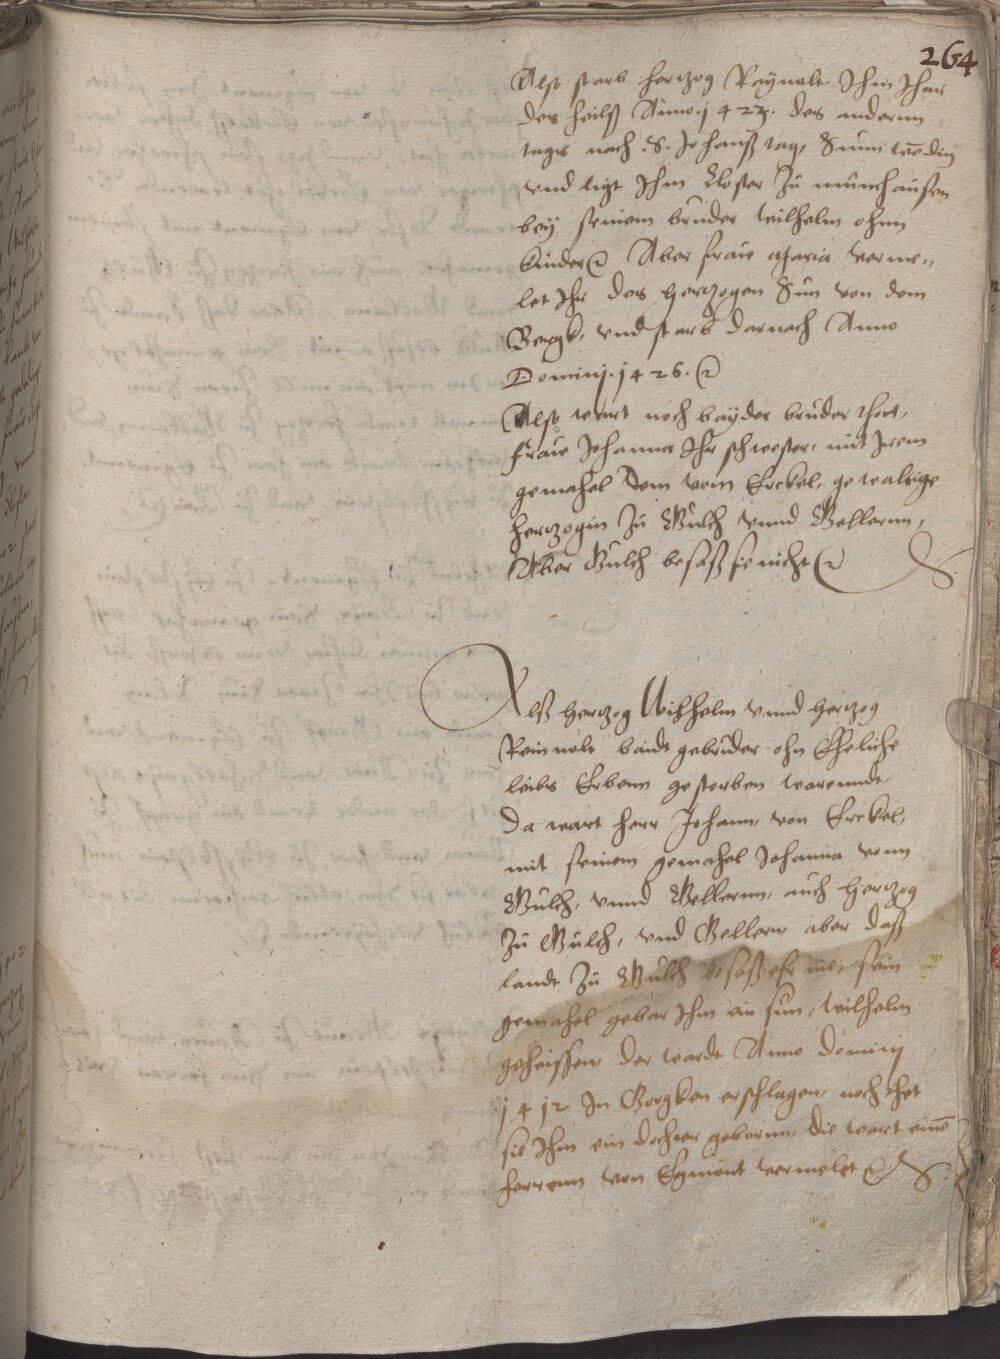 264
Also starb hertzog Raynalt Ihm Ihar
des heilß Anno. 1423. des andernn
tags nach .S. Johanß tag,
vnnd ligt Ihm Closter zu munchaußen
bey seinem bruder wilhelm ohnn
kinder Aber fraw Maria verme„
let Ihr des hertzogen Sun von dem
Bergk, vnd starb darnach Anno
Dominj. 1426.
Also wart noch bayder bruder thot,
fraw Johanna Ihr schwester, mit Irem
gemahel dem vom Erckel, gewaltige
hertzogin zu Gulch vnnd Gellernn,
Aber Gulch besaß sie nicht
Alß hertzog Wilhelm vnnd hertzog
Reinnolt baide gebruder ohn Eheliche
leibs Erbenn gestorben warenndt,
da wart herr Johann von Erckel,
mit seinem gemahel Johanna vonn
Gulch, vnnd Gellernn, auch hertzog
zu Gulch, vnd Gellern aber daß
landt zu Gulch besaß ehr nie, sein
gemahel gebar Ihm ein sun, wilhelm
geheissen, der wardt Anno dominj
1412 In Gorgken erschlagen, noch thet
sie Ihm ein dochter gebernn, die wart eine
herrenn von Egmont vermelet